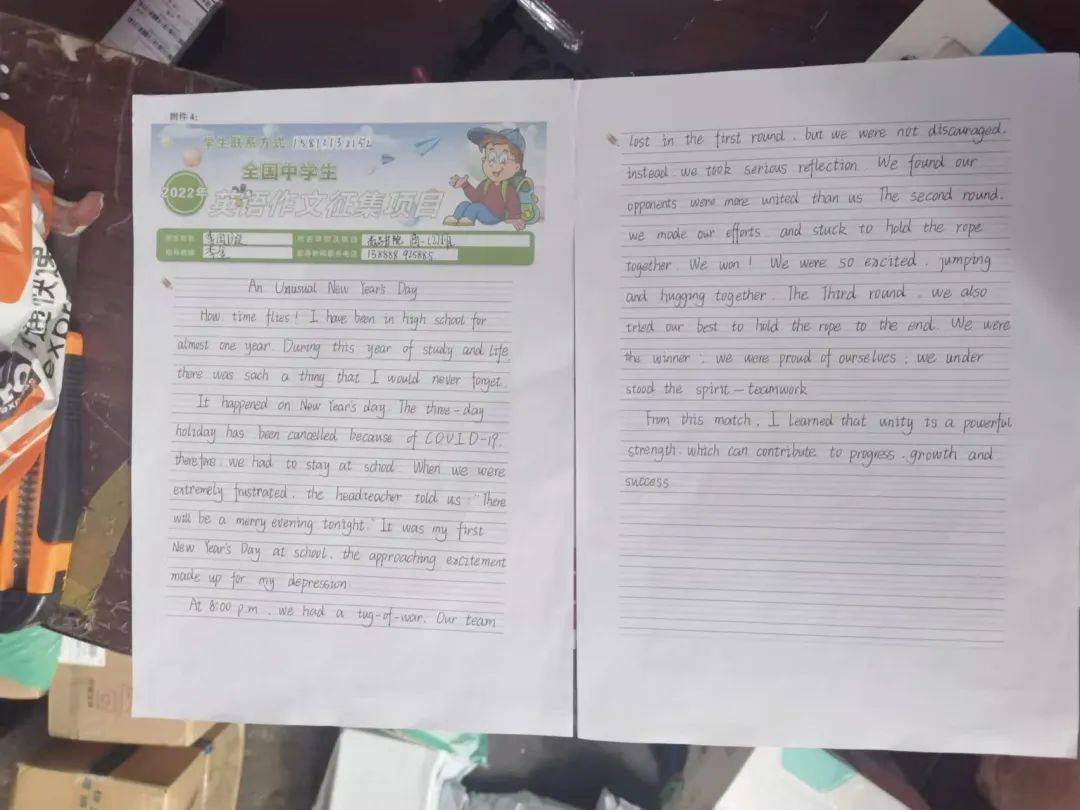 附件4:
学生联系方式
全国中学生
2022年
英语作文征集项目
An Unusual New Year's Day
How time flies! I have been in high school for
almost one year. During this year of study and life,
there was sach a thing that I would never forget.
It happened on New Year's day. The three-day
holiday has been cancelled because of COVID-19,
therefore, we had to stay at school. When we were
extremely frustrated, the headteacher told us: "There
will be a merry evening tonight." It was my first
New Year's Day at school, the approaching excitement
made up for my depression.
At 8:00 p.m., we had a tug-of-war. Our team
lost in the first round, but we were not discouraged.
instead, we took serious reflection. We found our
opponents were more united than us. The second round,
we made our efforts, and stuck to hold the rope
together. We won! We were so excited, jumping
and hugging together. The Third round, we also
tried our best to hold the rope to the end. We were
the winner; we were proud of ourselves; we under
stood the spirit - teamwork
From this match, I learned that unity is a powerful
strength, which can contribute to progress, growth and
success